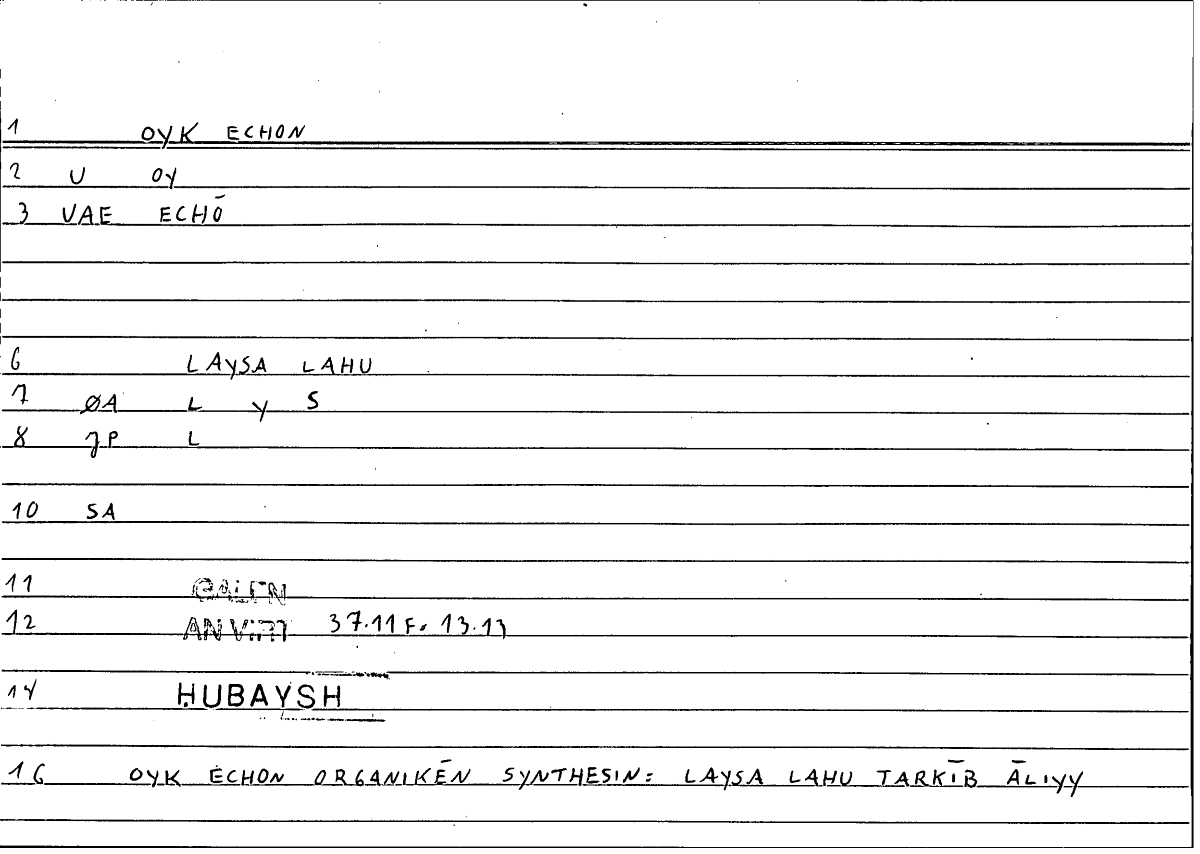 1 OYK ECHON
2 U OY
3 VAE ECHŌ
6 LAYSA LAHU
7 ØA L Y S
8 JP L
10 SA
11 GALEN
12 AN VIRT 37.11 F. 13.13
14 ḤUBAYSH
16 OYK ECHON ORGANIKĒN SYNTHESIN: LAYSA LAHU TARKĪB ĀLIYY